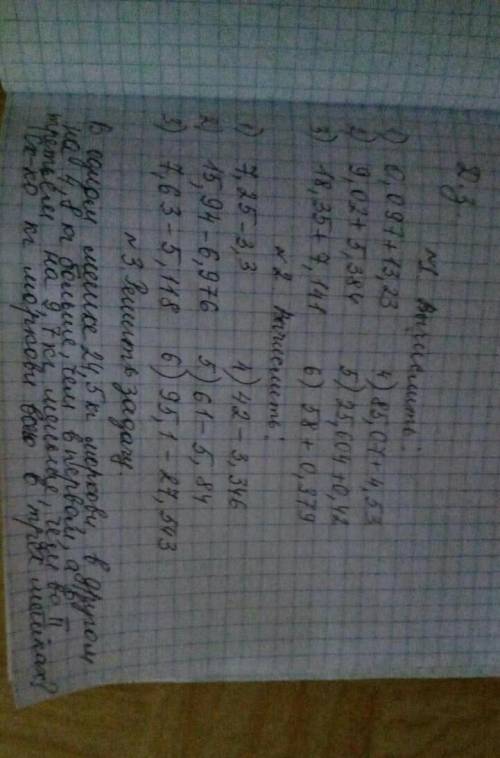 Д.з
№1 Вычислить:
1) 0,097+13,23 4) 85,07+4,53
2) 9,02+5,384 5) 25,604+0,42
3) 18,35+7,141 6) 58+0,379
№2 Вычислить:
1) 7,25-3,3 4) 42-3,346
2) 15,94-6,976 5) 61-5,84
3) 7,63-5,118 6) 95,1-27,543
№3. Решить задачу.
В одном мешке 24,5 кг моркови, в другом
на 4,8 кг больше, чем в первом, а в
третьем на 9,7 кг меньше, чем во II
Ск-ко кг моркови во в трёх мешках?